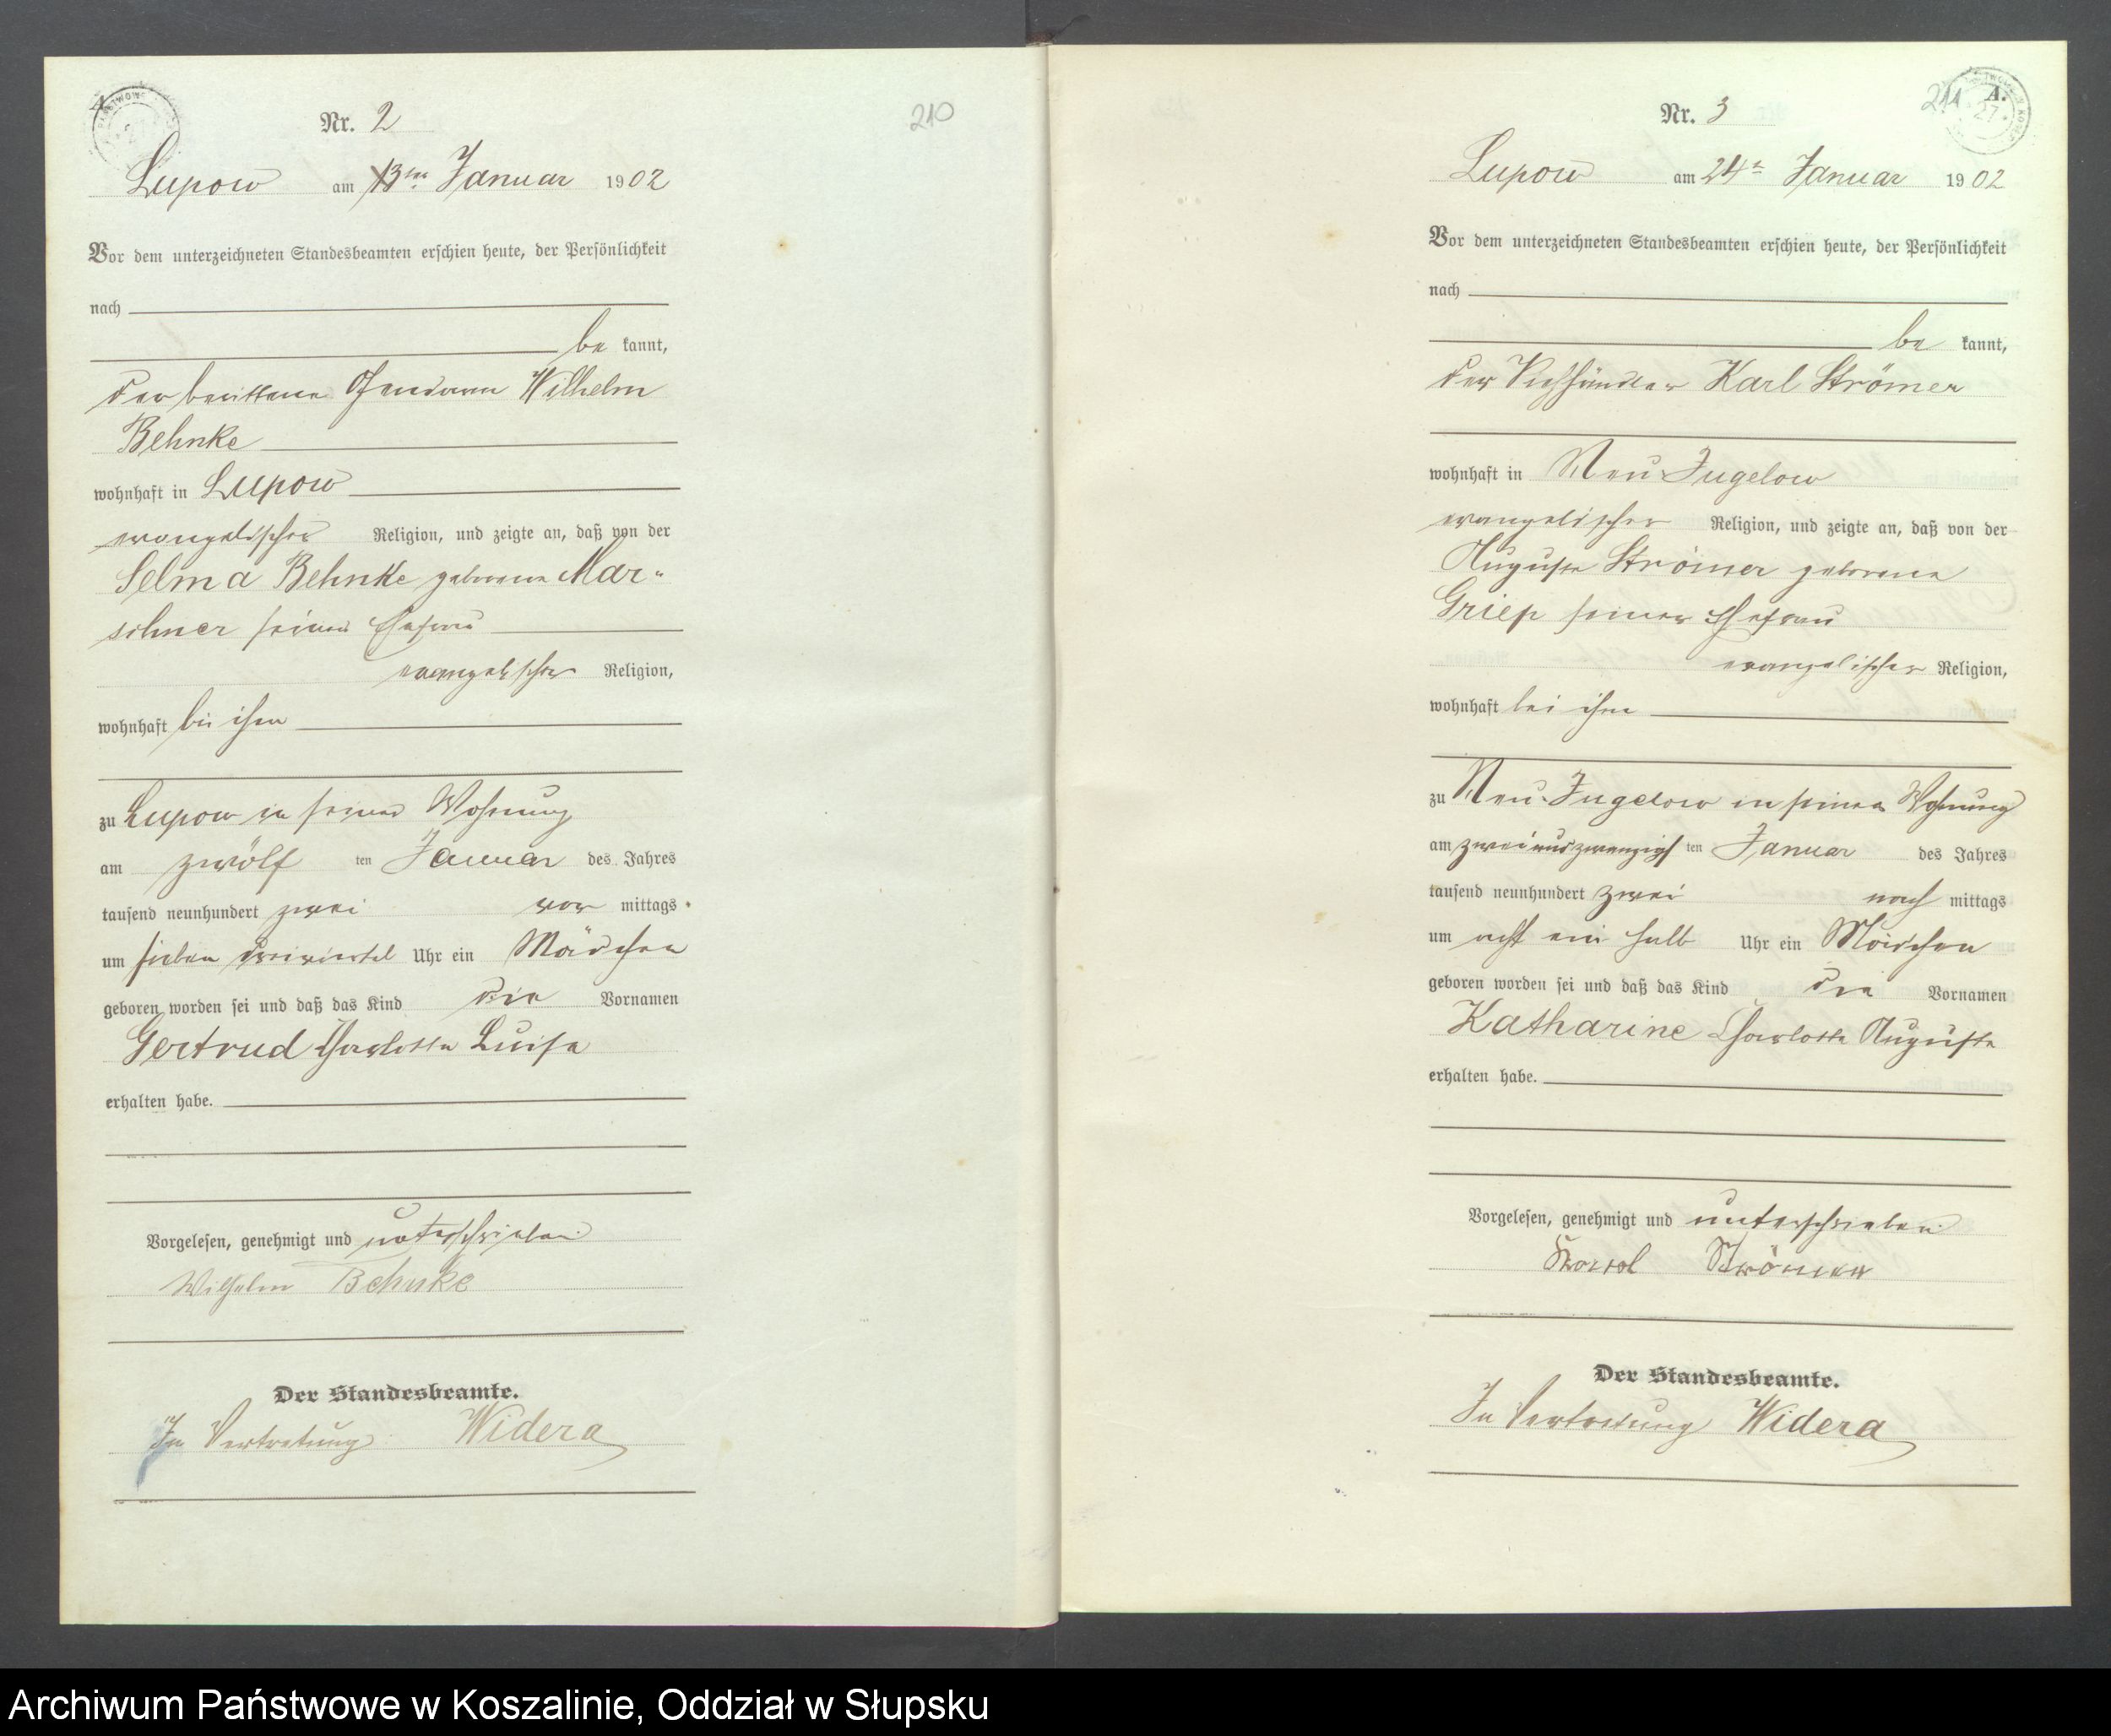 Nr. 2
210
Lupow am 13ten Januar 1902
Vor dem unterzeichneten Standesbeamten erschien heute, der Persönlichkeit
nach
be kannt,
der berittene Gendarm Wilhelm
Behnke
wohnhaft in Lupow
evangelischer Religion, und zeigte an, daß von der
Selma Behnke geborene Mar-
schner seiner Ehefrau
evangelischer Religion,
wohnhaft bei ihm
zu Lupow in seiner Wohnung
am zwölf ten Januar des Jahres
tausend neunhundert zwei vor mittags
um sieben dreiviertel Uhr ein Mädchen
geboren worden sei und daß das Kind die Vornamen
Gertrud Charlotte Luise
erhalten habe.
Vorgelesen, genehmigt und unterschrieben
Wilhelm Behnke
Der Standesbeamte.
In Vertretung Widera
211 A.
27
Nr. 3
Lupow am 24ten Januar 1902
Vor dem unterzeichneten Standesbeamten erschien heute, der Persönlichkeit
nach
be kannt,
der Viehhändler Karl Strömer
wohnhaft in Neu Jugelow
evangelischer Religion, und zeigte an, daß von der
Auguste Strömer geborene
Griep seiner Ehefrau
evangelischer Religion,
wohnhaft bei ihm
zu Neu-Jugelow in seiner Wohnung
am zweiundzwanzigsten Januar des Jahres
tausend neunhundert zwei nach mittags
um acht ein halb Uhr ein Mädchen
geboren worden sei und daß das Kind die Vornamen
Katharine Charlotte Auguste
erhalten habe.
Vorgelesen, genehmigt und unterschrieben
Karl Strömer
Der Standesbeamte.
In Vertretung Widera
Archiwum Państwowe w Koszalinie, Oddział w Słupsku